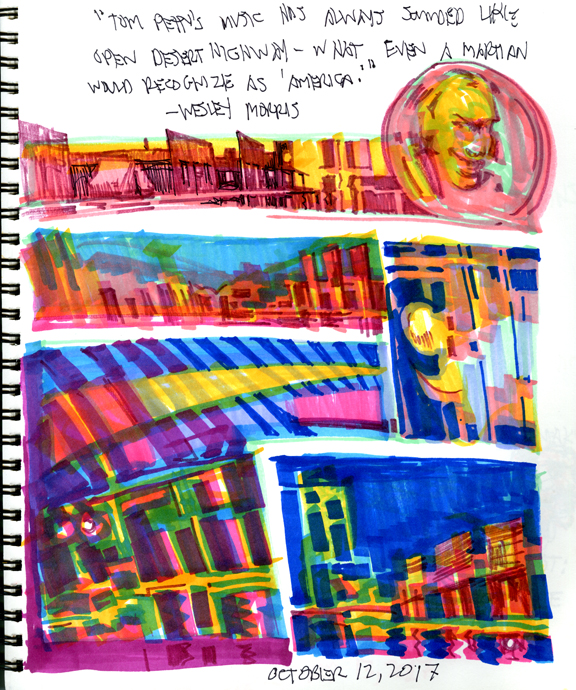 "TOM PETTY'S MUSIC HAS ALWAYS SOUNDED LIKE
OPEN DESERT HIGHWAY – WHAT EVEN A MARTIAN
WOULD RECOGNIZE AS 'AMERICA.'"
–WESLEY MORRIS
OCTOBER 12, 2017